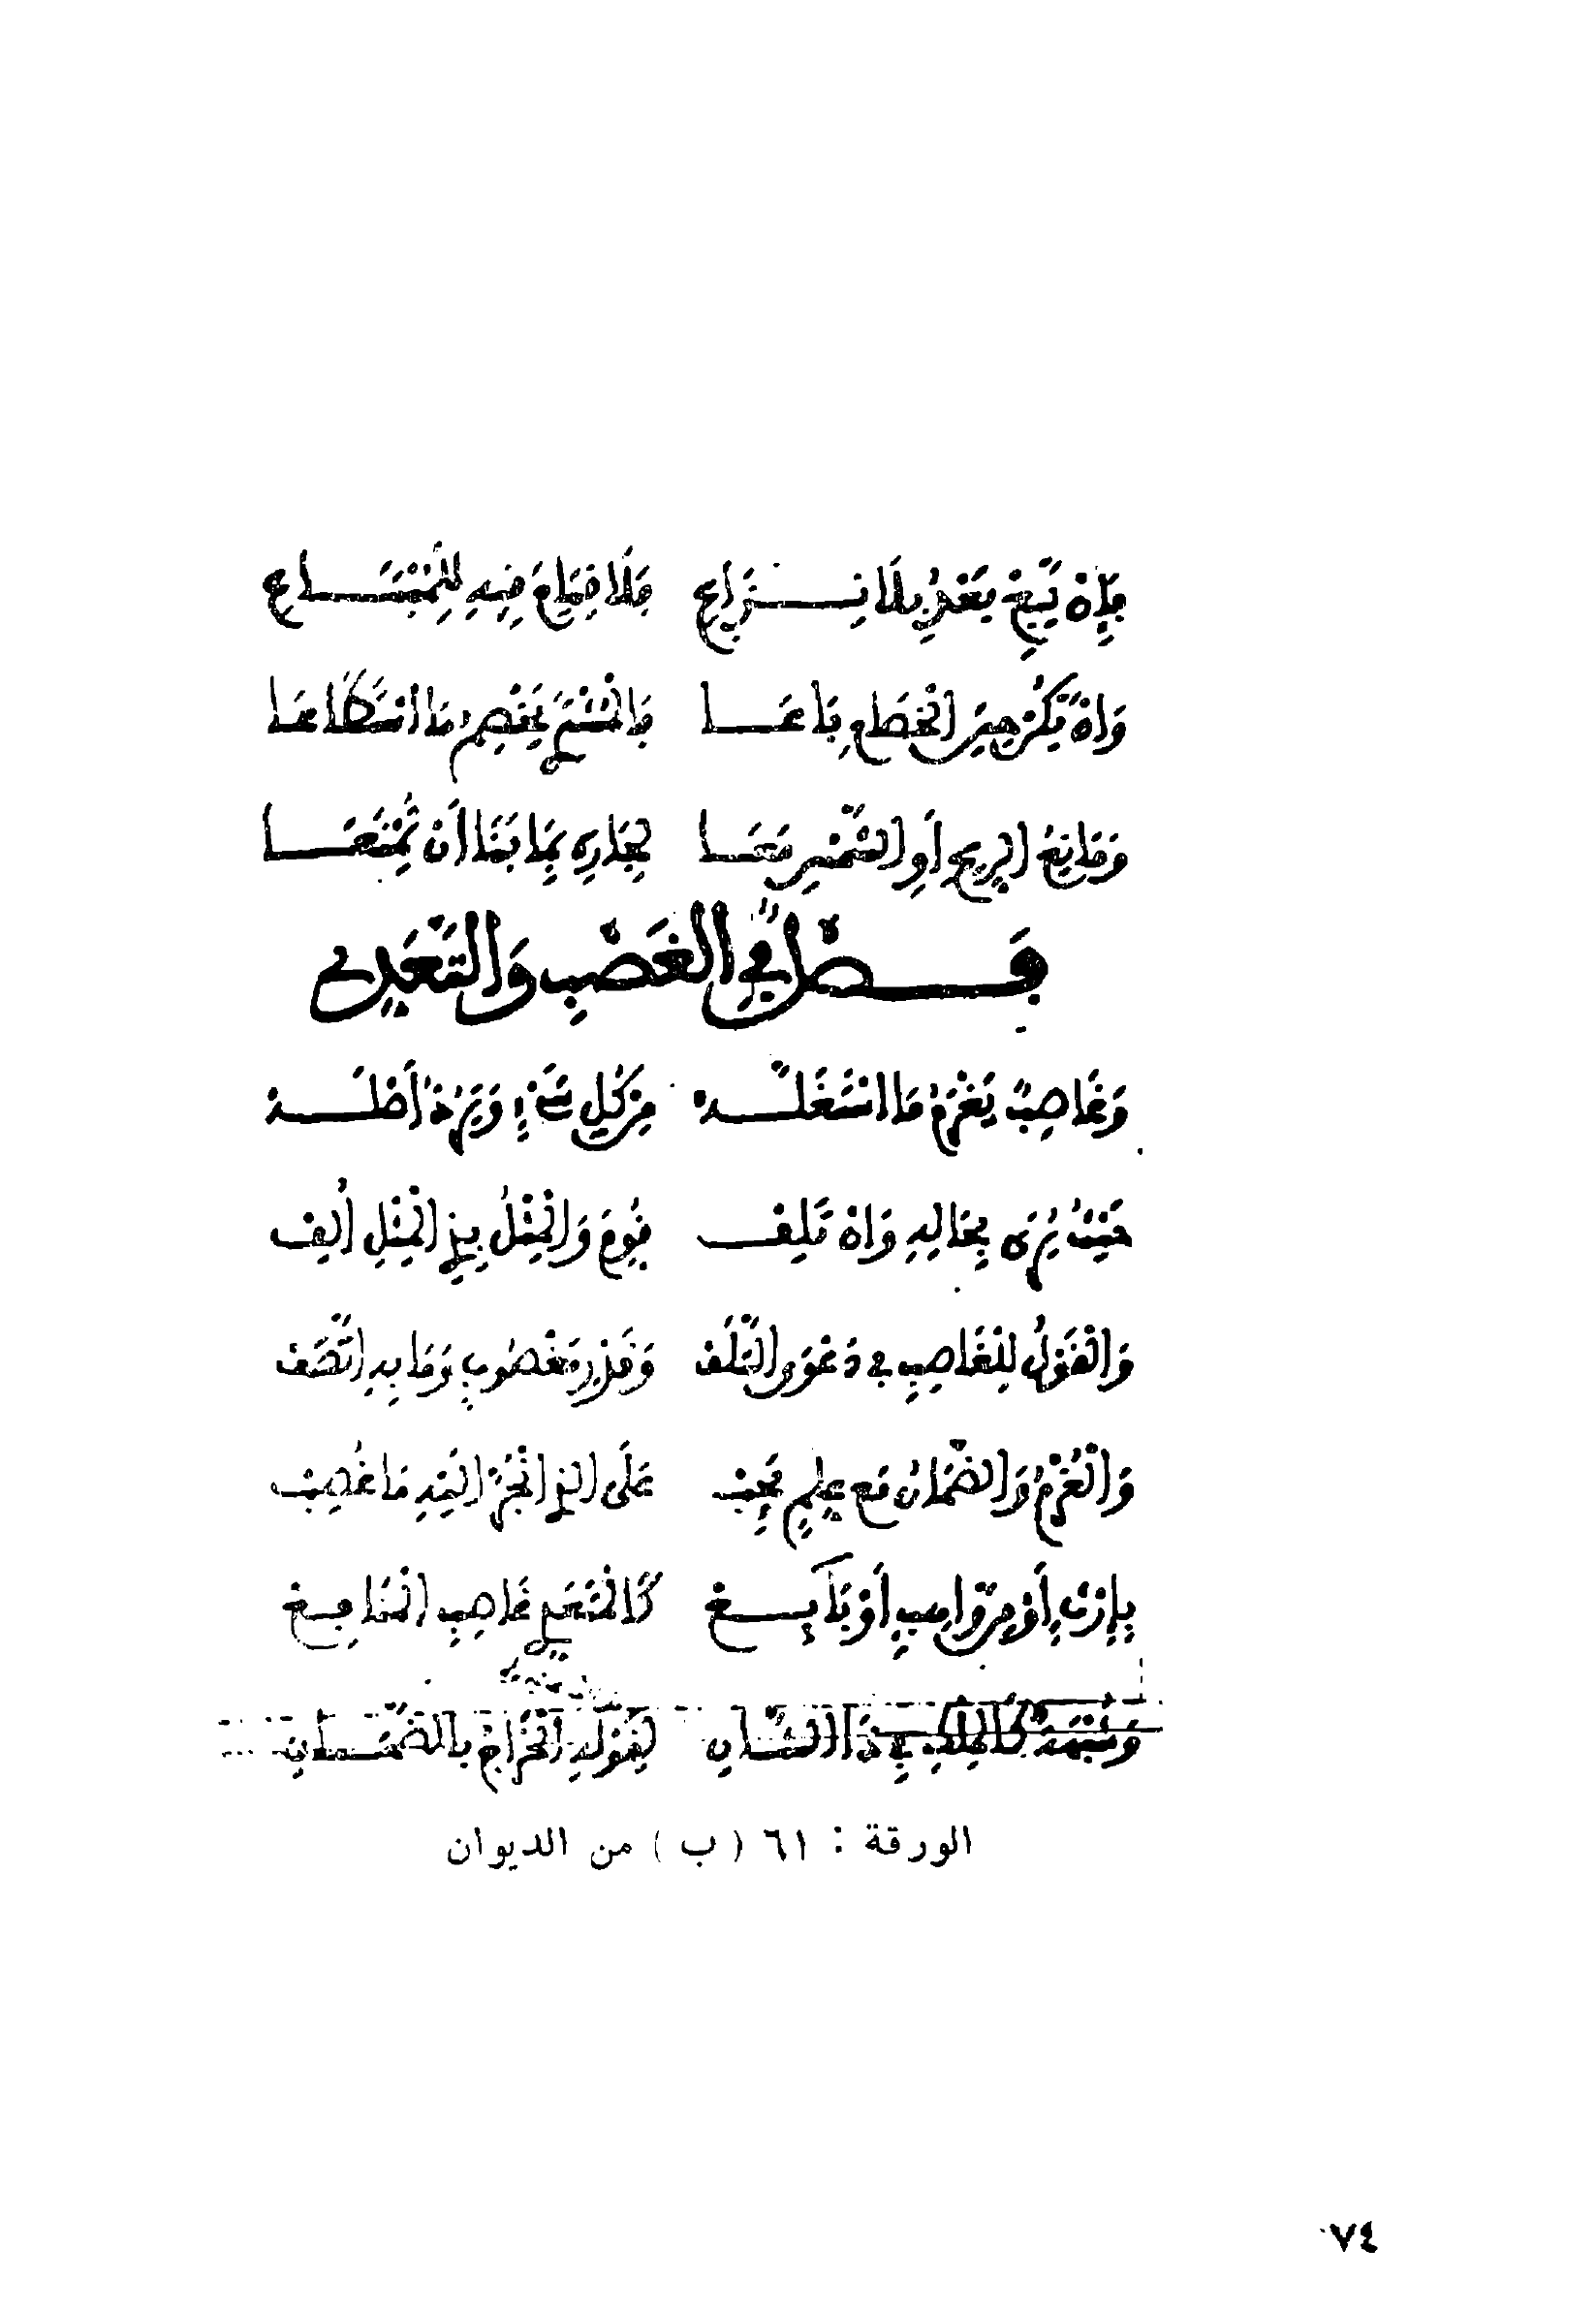 فَإِنْ يَبِعْ بَعْدُ بِلَا نِزَاعِ فَلَا قِيَامَ فِيهِ لِلْمُبْتَاعِ
وَانْ يَكُنْ حِينَ الْخِصَامِ بَاعَا فَالْمُشْتَرِي يَخْصِمُ مَا اسْتَطَاعَا
وَمَانِعُ الرِّيحِ أَوِ الشَّمْسِ مَعَا لِجَارِهِ بِمَا بَنَا أَنْ يُمْنَعَا
فَصْلٌ فِي الْغَصْبِ وَالتَّعَدِّي
وَغَاصِبٌ يَغْرَمُ مَا اسْتَغَلَّهْ مِنْ كُلِّ شَيْءٍ وَيَرُدُّ أَصْلَهْ
حَيْثُ يُرَى بِحَالِهِ وَانْ تَلِفْ قُوِّمَ وَالْمِثْلُ بِذِي الْمِثْلِ أُلِفْ
وَالْقَوْلُ لِلْغَاصِبِ فِي دَعْوَى التَّلَفْ وَقَدْرِ مَغْصُوبٍ وَمَا بِهِ اتَّصَفْ
وَالْغُرْمُ وَالضَّمَانُ مَعْ عِلْمٍ يَجِبْ عَلَى الَّذِي انْجَرَّ الَيْهِ مَا غُصِبْ
بِإِرْثٍ أَوْ مِنْ وَاهِبٍ أَوْ بَائِعْ كَالْمُتَعَدِّي غَاصِبِ الْمَنَافِعْ
وَشُبْهَةٌ كَالْمِلْكِ فِي ذَا الشَّانِ لِقَوْلِهِ الْخَرَاجُ بِالضَّمَانِ
الورقة : ٦١ ( ب ) من الديوان
٧٤